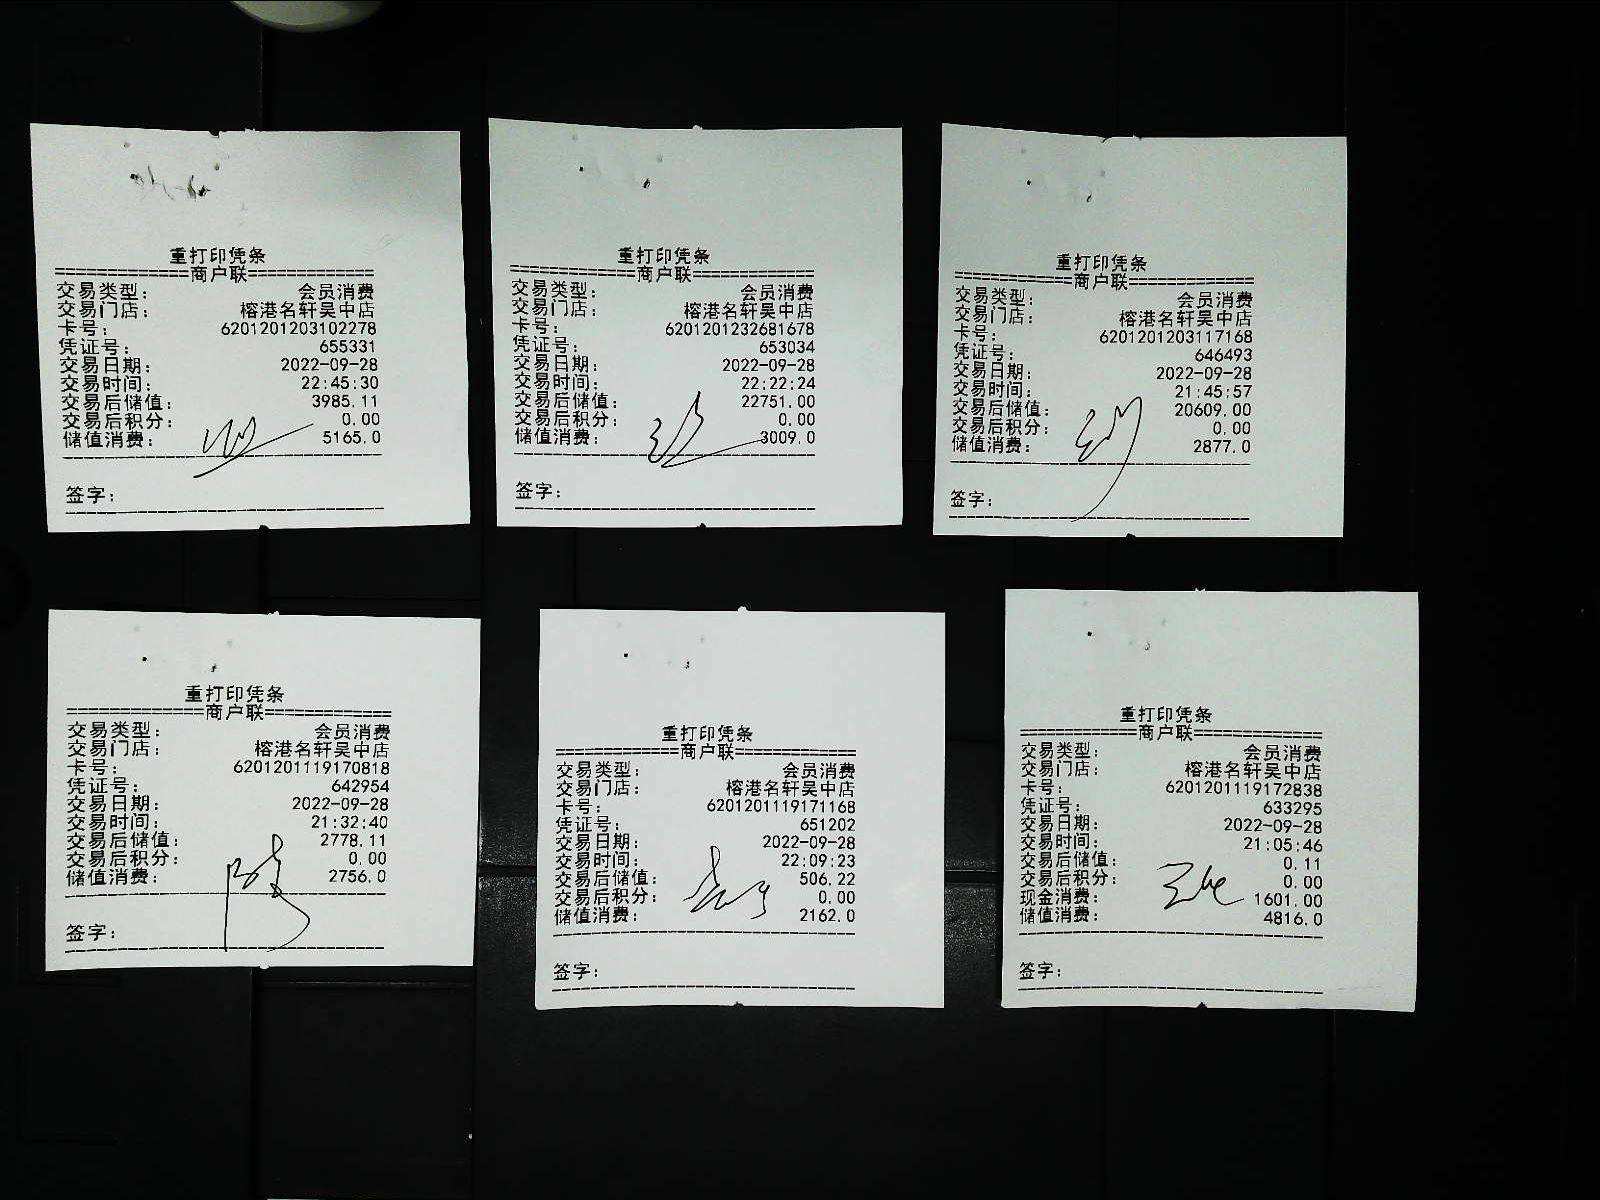 重打印凭条
=============商户联=============
交易类型： 会员消费
交易门店： 榕港名轩吴中店
卡号： 6201201203102278
凭证号： 655331
交易日期： 2022-09-28
交易时间： 22:45:30
交易后储值： 3985.11
交易后积分： 0.00
储值消费： 5165.0
签字：
重打印凭条
=============商户联=============
交易类型： 会员消费
交易门店： 榕港名轩吴中店
卡号： 6201201232681678
凭证号： 653034
交易日期： 2022-09-28
交易时间： 22:22:24
交易后储值： 22751.00
交易后积分： 0.00
储值消费： 3009.0
签字：
重打印凭条
=============商户联=============
交易类型： 会员消费
交易门店： 榕港名轩吴中店
卡号： 6201201203117168
凭证号： 646493
交易日期： 2022-09-28
交易时间： 21:45:57
交易后储值： 20609.00
交易后积分： 0.00
储值消费： 2877.0
签字：
重打印凭条
=============商户联=============
交易类型： 会员消费
交易门店： 榕港名轩吴中店
卡号： 6201201119170818
凭证号： 642954
交易日期： 2022-09-28
交易时间： 21:32:40
交易后储值： 2778.11
交易后积分： 0.00
储值消费： 2756.0
签字：
重打印凭条
=============商户联=============
交易类型： 会员消费
交易门店： 榕港名轩吴中店
卡号： 6201201119171168
凭证号： 651202
交易日期： 2022-09-28
交易时间： 22:09:23
交易后储值： 506.22
交易后积分： 0.00
储值消费： 2162.0
签字：
重打印凭条
=============商户联=============
交易类型： 会员消费
交易门店： 榕港名轩吴中店
卡号： 6201201119172838
凭证号： 633295
交易日期： 2022-09-28
交易时间： 21:05:46
交易后储值： 0.11
交易后积分： 0.00
现金消费： 1601.00
储值消费： 4816.0
签字：